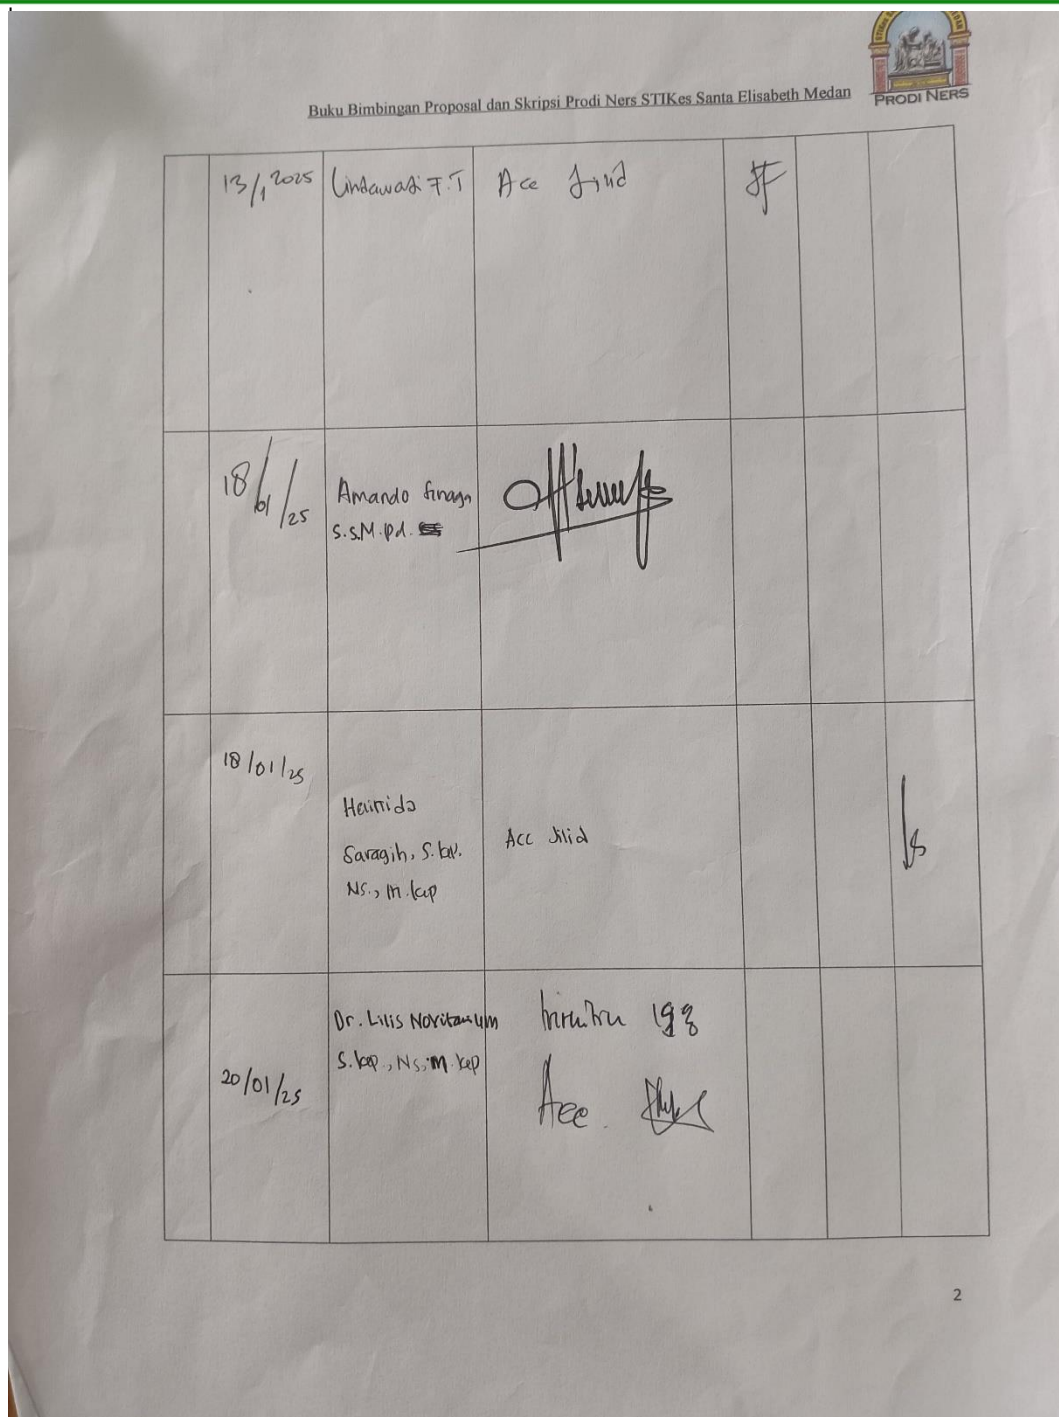 Buku Bimbingan Proposal dan Skripsi Prodi Ners STIKes Santa Elisabeth Medan
PRODI NERS
13/1 2025 Lindawati F.T Acc Jilid
18/01/25 Amando Sinaga
S.S.M.pd.
18/01/25
Hairrida
Saragih, S.kep.
Ns., M.kep
Acc Jilid
Dr. Lilis Novitarum
S.kep., Ns., M.kep
20/01/25
Acc.
2